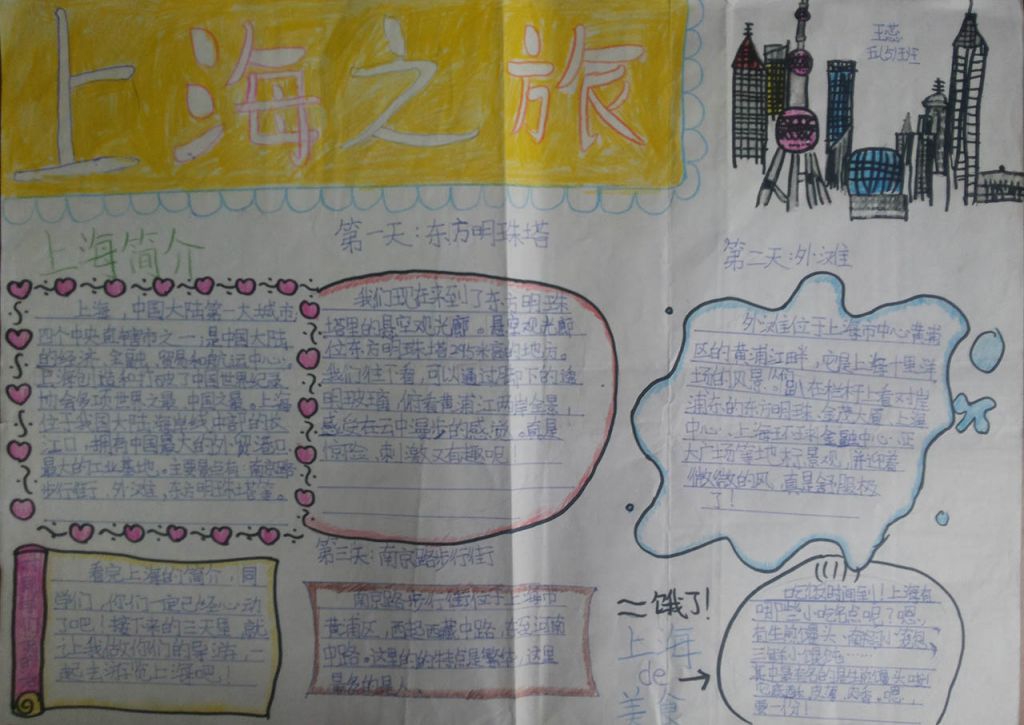 上海之旅
王蕊
五(5)班
上海简介
上海，中国大陆第一大城市
四个中央直辖市之一；是中国大陆
的经济、金融、贸易和航运中心。
上海创造和打破了中国世界纪录
协会多项世界之最、中国之最。上海
位于我国大陆海岸线中部的
江口，拥有中国最大的外贸港口
最大的工业基地。主要景点有：南京路
步行街，外滩，东方明珠塔等。
第一天:东方明珠塔
我们现在来到了东方明珠
塔里的悬空观光廊。悬空观光廊
位东方明珠塔295米高的地方。
我们往下看，可以通过脚下的透
明玻璃，俯看黄浦江两岸全景！
感受在云中漫步的感觉。真是
惊险，刺激又有趣呢！
第二天:外滩
外滩位于上海市中心黄浦
区的黄浦江畔，它是上海十里洋
场的风景。趴在栏杆上看对岸
浦东的东方明珠、金茂大厦、上海
中心、上海环球金融中心、正
大广场等地标景观，并迎着
微微的风，真是舒服极
了！
看完上海的简介，同
学们，你们一定已经心动
了吧！接下来的三天里，就
让我做你们的导游，一
起去游览上海吧！
第三天:南京路步行街
南京路步行街位于上海市
黄浦区，西起西藏中路，东至河南
中路。这里的的特点是繁华，这里
最多的是人。
饿了！
上海
de
美食
吃饭时间到！上海有
哪些小吃名点呢？嗯，
有生煎馒头、南翔小笼包、
三鲜小馄饨……
其中最有名的是生煎馒头啦！
它底酥、皮薄、肉香。嗯，
要一份！